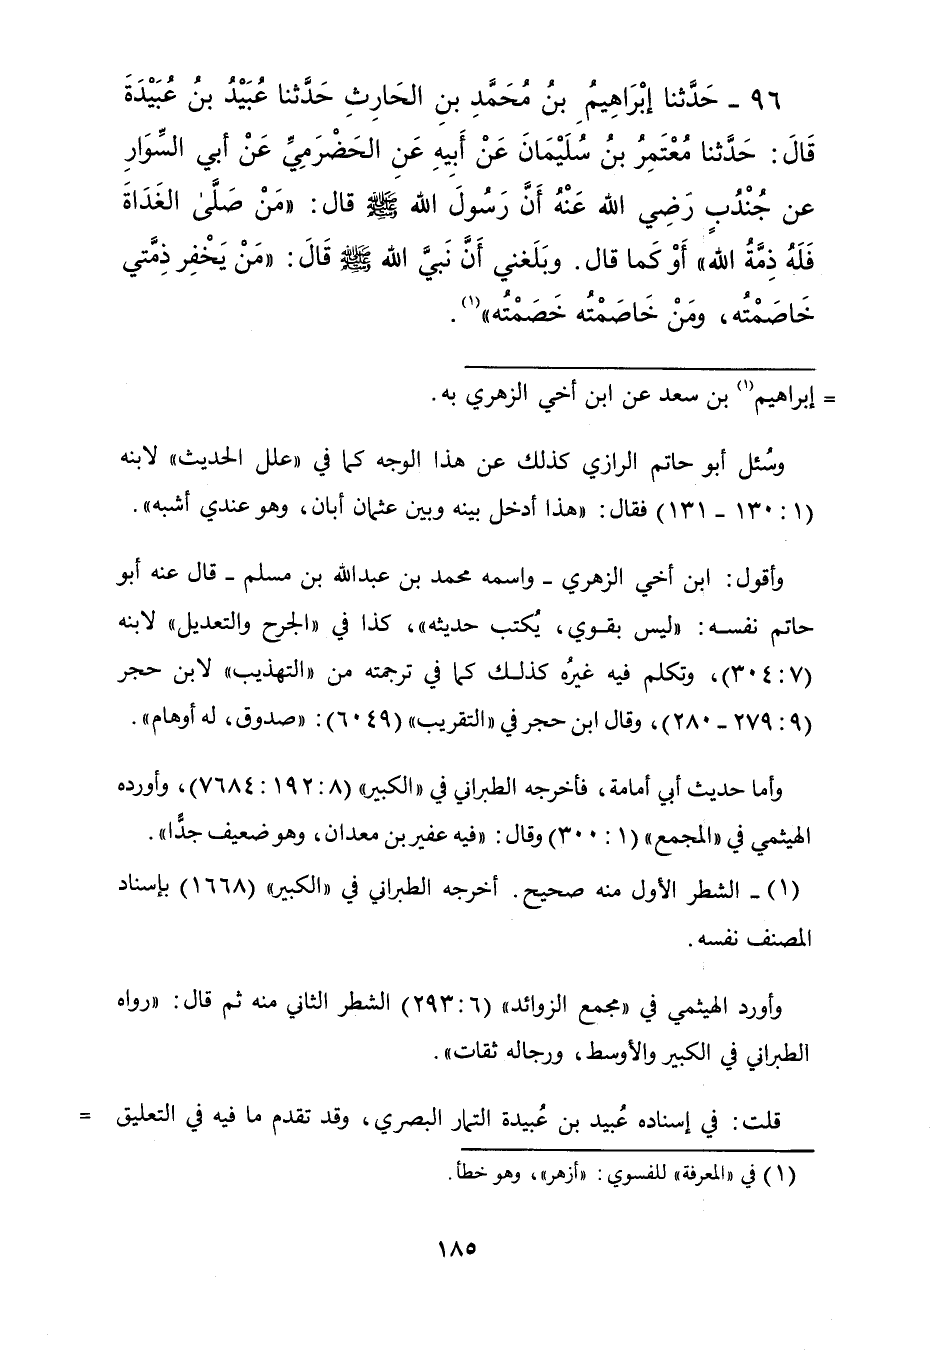 ٩٦ ـ حَدَّثنا إبْرَاهِيمُ بنُ مُحَمَّدِ بنِ الحَارِثِ حَدَّثنا عُبَيْدُ بنُ عُبَيْدَةَ
قَالَ: حَدَّثنا مُعْتَمِرُ بنُ سُلَيْمَانَ عَنْ أَبيهِ عَنِ الحَضْرَمِيِّ عَنْ أبي السِّوَارِ
عن جُنْدُبٍ رَضِي الله عَنْهُ أَنَّ رَسُولَ الله ﷺ قال: «مَنْ صَلَّىٰ الغَدَاةَ
فَلَهُ ذِمَّةُ الله» أَوْ كما قال. وبَلَغني أَنَّ نَبيَّ الله ﷺ قَالَ: «مَنْ يَخْفِر ذِمَّتي
خَاصَمْتُه، ومَنْ خَاصَمْتُه خَصَمْتُه»(١).
= إبراهيم(١) بن سعد عن ابن أخي الزهري به.
وسُئل أبو حاتم الرازي كذلك عن هذا الوجه كما في «علل الحديث» لابنه
(١: ١٣٠ ـ ١٣١) فقال: «هذا أدخل بينه وبين عثمان أبان، وهو عندي أشبه».
وأقول: ابن أخي الزهري ـ واسمه محمد بن عبدالله بن مسلم ـ قال عنه أبو
حاتم نفسه: «ليس بقوي، يُكتب حديثه»، كذا في «الجرح والتعديل» لابنه
(٧: ٣٠٤)، وتكلم فيه غيرُه كذلك كما في ترجمته من «التهذيب» لابن حجر
(٩: ٢٧٩ ـ ٢٨٠)، وقال ابن حجر في «التقريب» (٦٠٤٩): «صدوق، له أوهام».
وأما حديث أبي أمامة، فأخرجه الطبراني في «الكبير» (٨: ١٩٢: ٧٦٨٤)، وأورده
الهيثمي في «المجمع» (١: ٣٠٠) وقال: «فيه عفير بن معدان، وهو ضعيف جدًّا».
(١) ـ الشطر الأول منه صحيح. أخرجه الطبراني في «الكبير» (١٦٦٨) بإسناد
المصنف نفسه.
وأورد الهيثمي في «مجمع الزوائد» (٦: ٢٩٣) الشطر الثاني منه ثم قال: «رواه
الطبراني في الكبير والأوسط، ورجاله ثقات».
قلت: في إسناده عُبيد بن عُبيدة التمار البصري، وقد تقدم ما فيه في التعليق =
(١) في «المعرفة» للفسوي: «أزهر»، وهو خطأ.
١٨٥